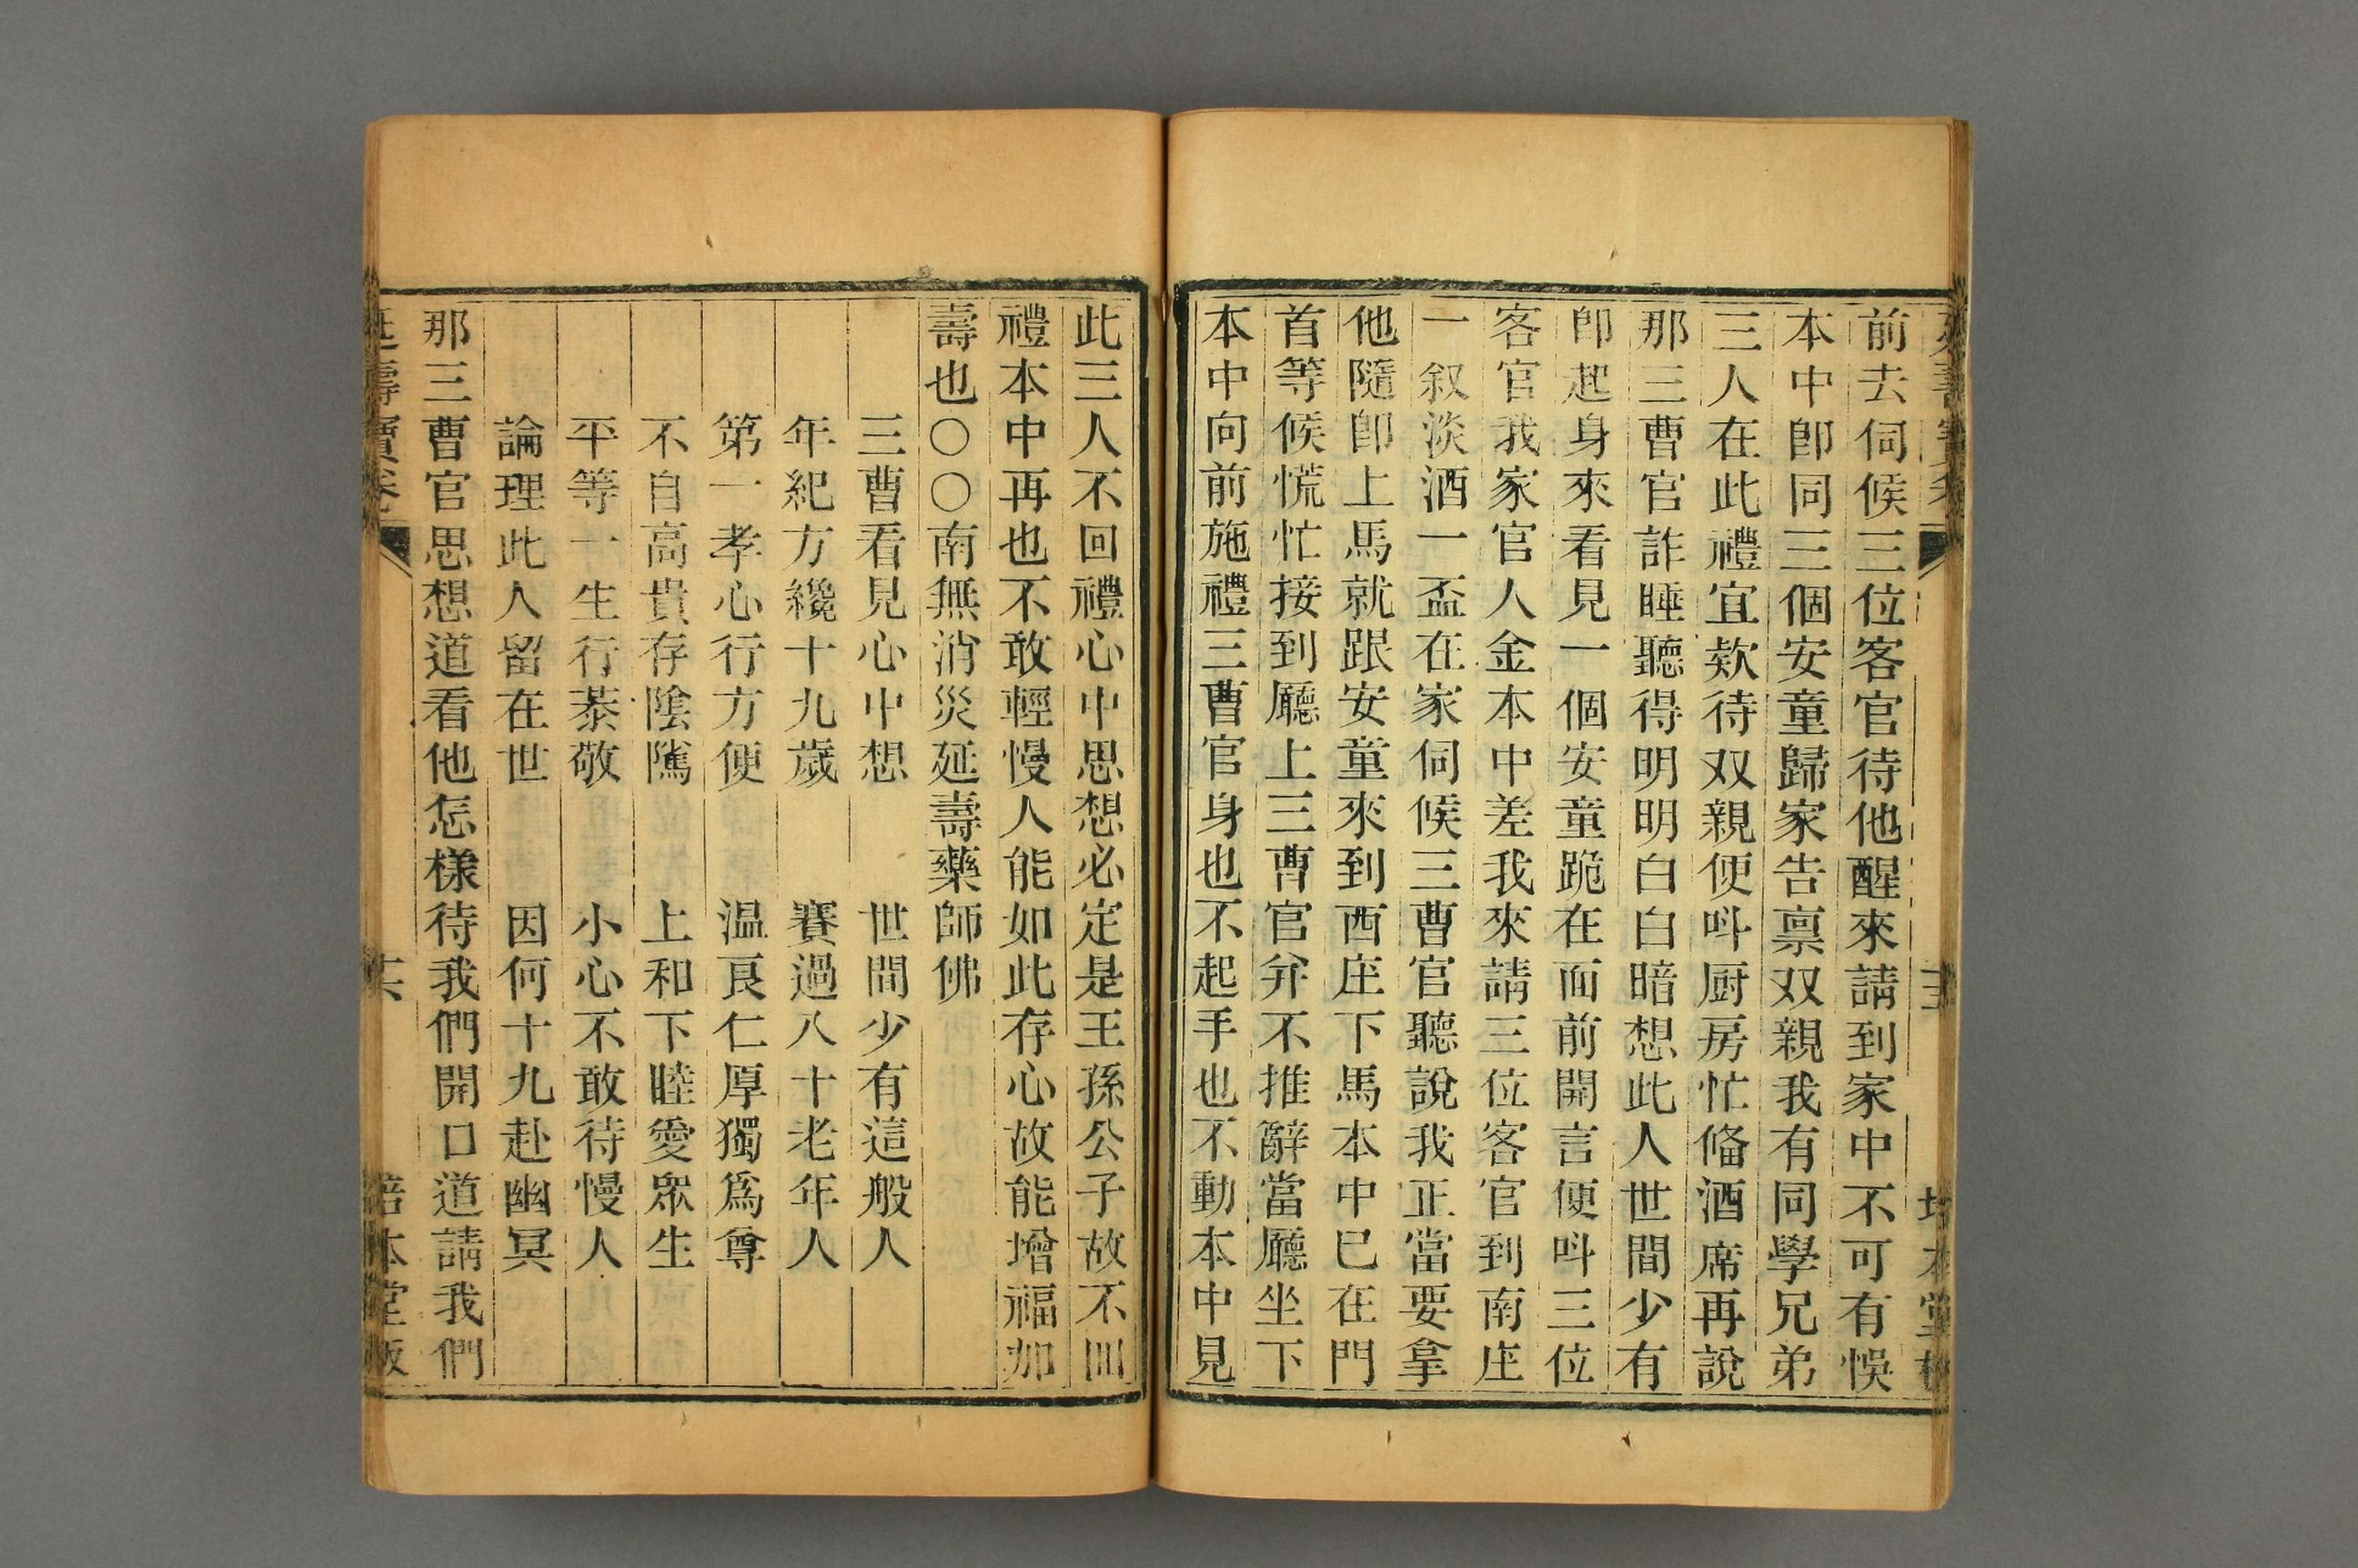 前去伺候三位客官待他醒來請到家中不可有悞
本中卽同三個安童歸家告禀双親我有同學兄弟
三人在此禮宜欵待双親便呌厨房忙偹酒席再說
那三曹官詐睡聽得明明白白暗想此人世間少有
卽起身來看見一個安童跪在面前開言便呌三位
客官我家官人金本中差我來請三位客官到南庄
一叙淡酒一盃在家伺候三曹官聽說我正當要拿
他隨卽上馬就跟安童來到西庄下馬本中已在門
首等候慌忙接到廳上三曹官弁不推辭當廳坐下
本中向前施禮三曹官身也不起手也不動本中見
此三人不回禮心中思想必定是王孫公子故不回
禮本中再也不敢輕慢人能如此存心故能增福加
壽也〇〇南無消災延壽藥師佛
三曹看見心中想 世間少有這般人
年紀方纔十九歲 賽過八十老年人
第一孝心行方便 温良仁厚獨爲尊
不自高貴存陰隲 上和下睦愛眾生
平等一生行恭敬 小心不敢待慢人
論理此人留在世 因何十九赴幽冥
那三曹官思想道看他怎樣待我們開口道請我們
延壽寶卷